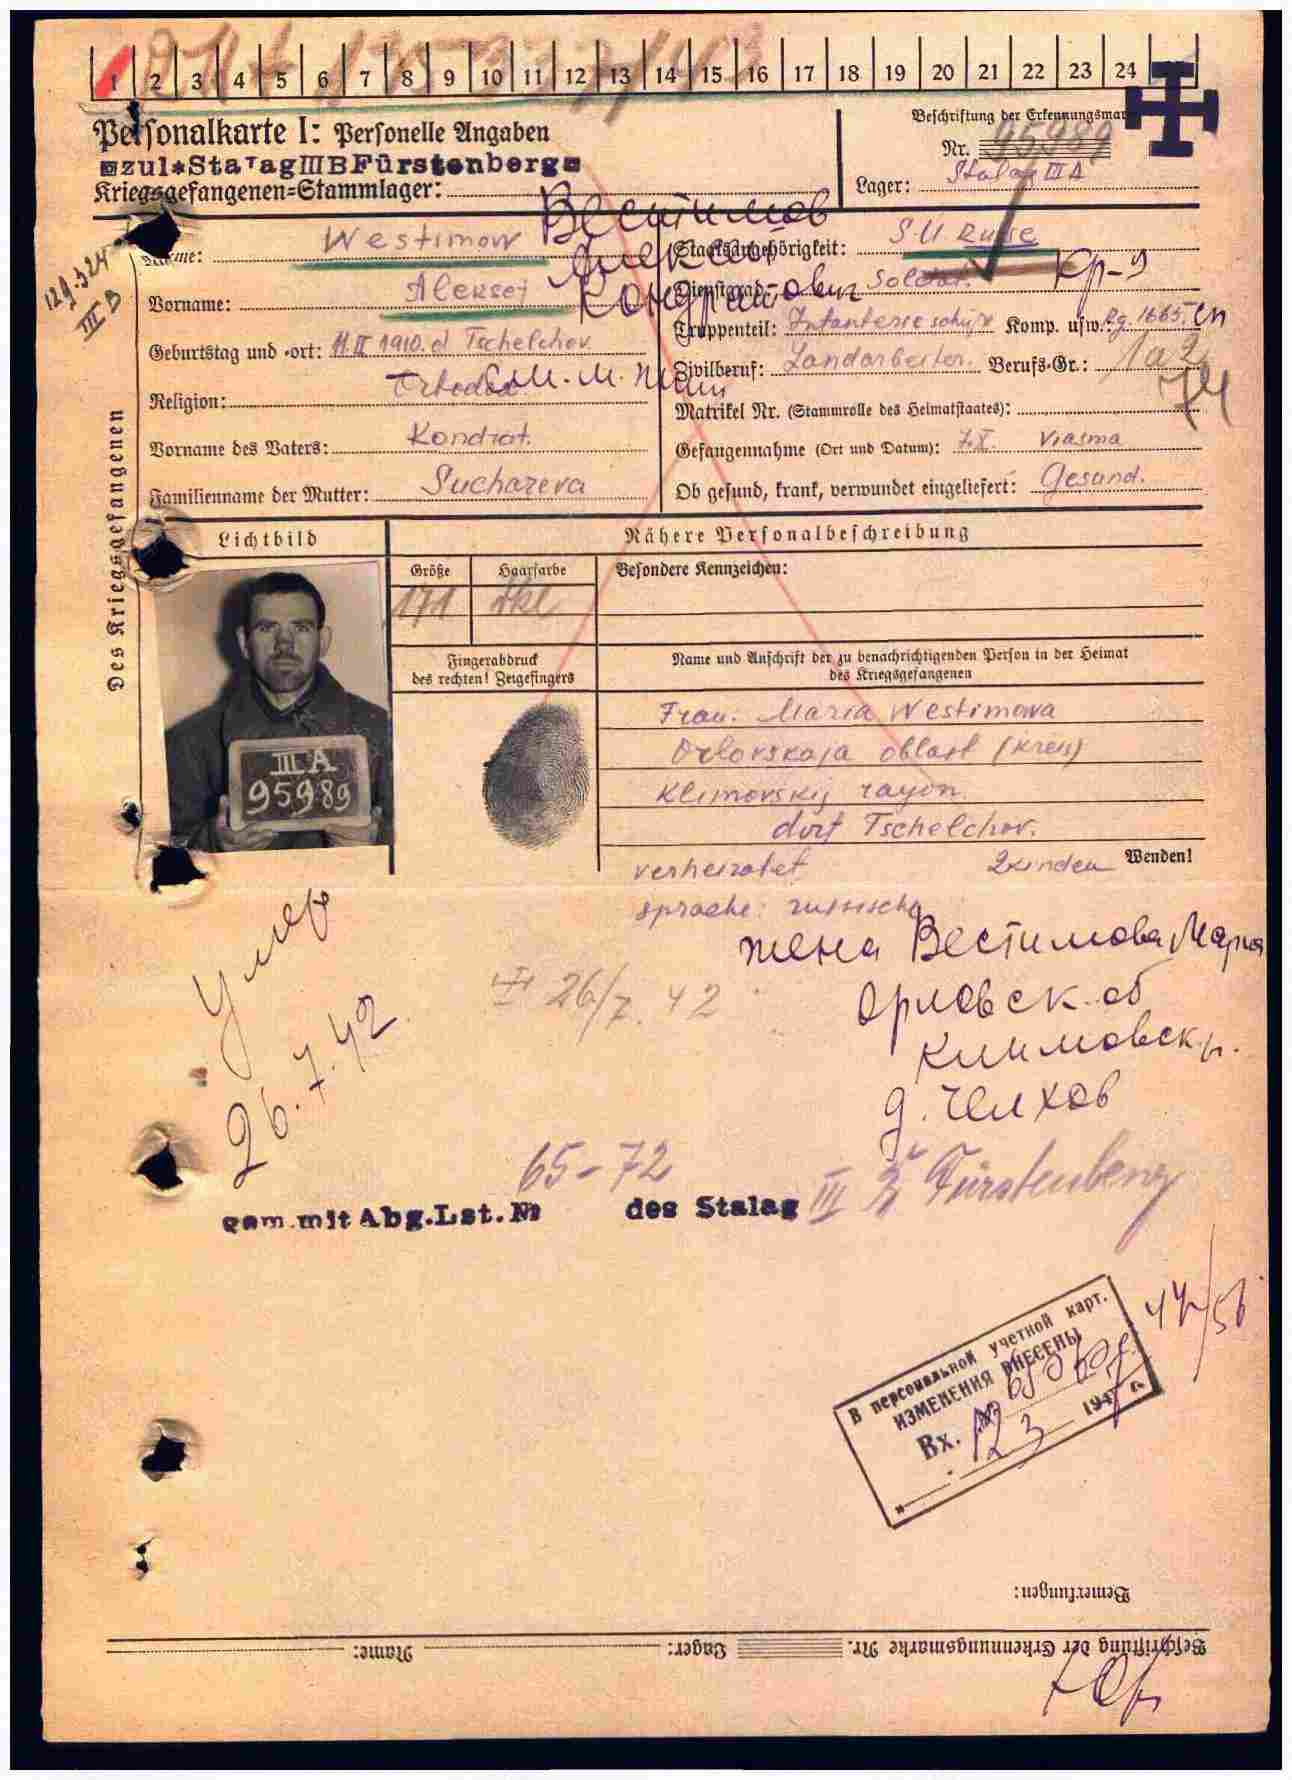 1 2 3 4 5 6 7 8 9 10 11 12 13 14 15 16 17 18 19 20 21 22 23 24
Personalkarte I: Personelle Angaben
zul*Stalag III B Fürstenberg
Kriegsgefangenen=Stammlager:
Beschriftung der Erkennungsmarke
Nr. 95989
Lager: Stalag III A
129324
III B
Des Kriegsgefangenen
Name: Westimow
Вестимов
Vorname: Aleksej
Алексей
Кондратович
Geburtstag und -ort: 11.II 1910. d Tschelchov.
Religion: Ortodox.
Vorname des Vaters: Kondrat.
Familienname der Mutter: Suchareva
Staatsangehörigkeit: S.U. Russe
Dienstgrad: Soldat.
кр-ц
Truppenteil: Infanterieschütz Komp. usw.: Rg. 1665.
Zivilberuf: Landarbeiter. Berufs-Gr.: 1a2
74
Matrikel Nr. (Stammrolle des Heimatstaates):
Gefangennahme (Ort und Datum): 7.X. Viasma
Ob gesund, krank, verwundet eingeliefert: Gesund.
Lichtbild
Nähere Personalbeschreibung
Größe Haarfarbe Besondere Kennzeichen:
171 dkl
III A
95989
Fingerabdruck
des rechten! Zeigefingers
Name und Anschrift der zu benachrichtigenden Person in der Heimat
des Kriegsgefangenen
Frau. Maria Westimowa
Orlovskaja oblast (kreis)
Klimovskij rayon.
dorf Tschelchov.
Wenden!
verheiratet 2 kinder
sprache: russische
жена Вестимова Мария
Орловск. об
Климовск. р.
д. Челхов
умер
26.7.42
26/7. 42
65-72
gem. mit Abg.Lst.№ des Stalag III B Fürstenberg
В персональной учетной карт.
ИЗМЕНЕНИЯ ВНЕСЕНЫ
Вх. №
194 г.
Bemerkungen:
Beschriftung der Erkennungsmarke Nr. Lager: Name: